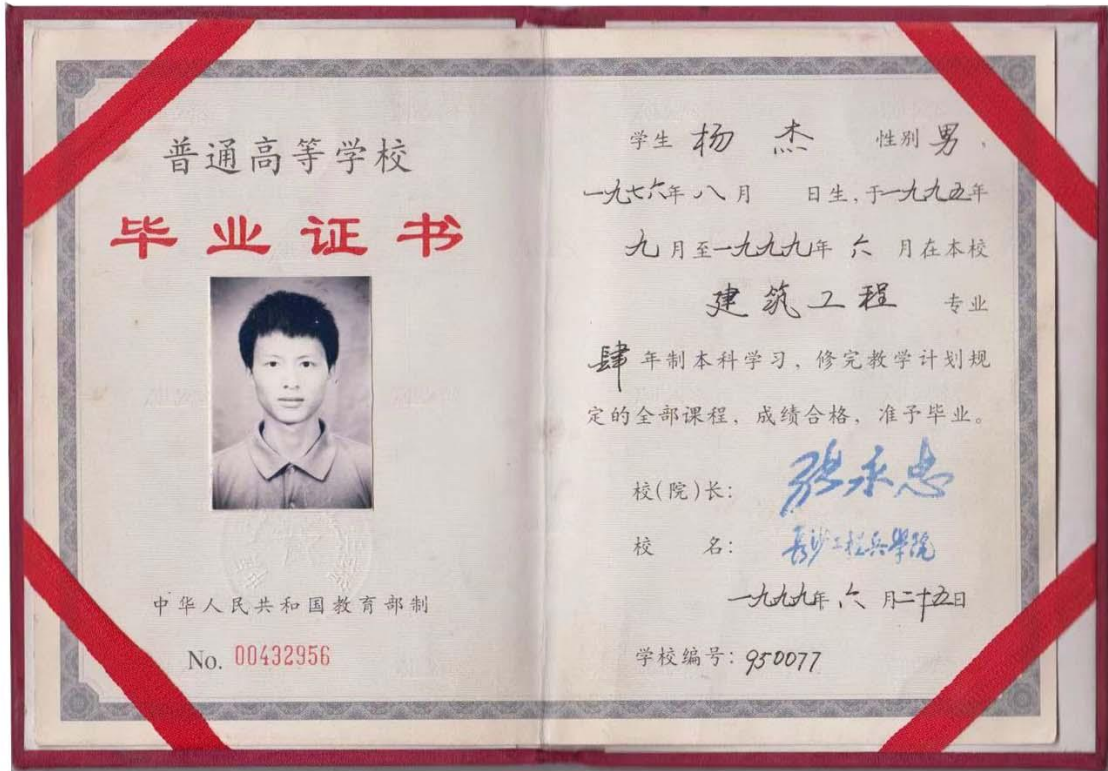 普通高等学校
毕业证书
中华人民共和国教育部制
No. 00432956
学生 杨杰 性别 男，
一九七六年八月 日生，于一九九五年
九月至一九九九年六月在本校
建筑工程 专业
肆年制本科学习，修完教学计划规
定的全部课程，成绩合格，准予毕业。
校（院）长： 张永忠
校 名： 长沙工程兵學院
一九九九年六月二十五日
学校编号：950077